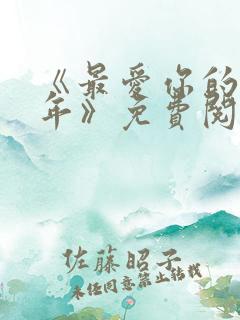 《最爱你的
年》免费阅
佐藤昭子
未经同意禁止转载